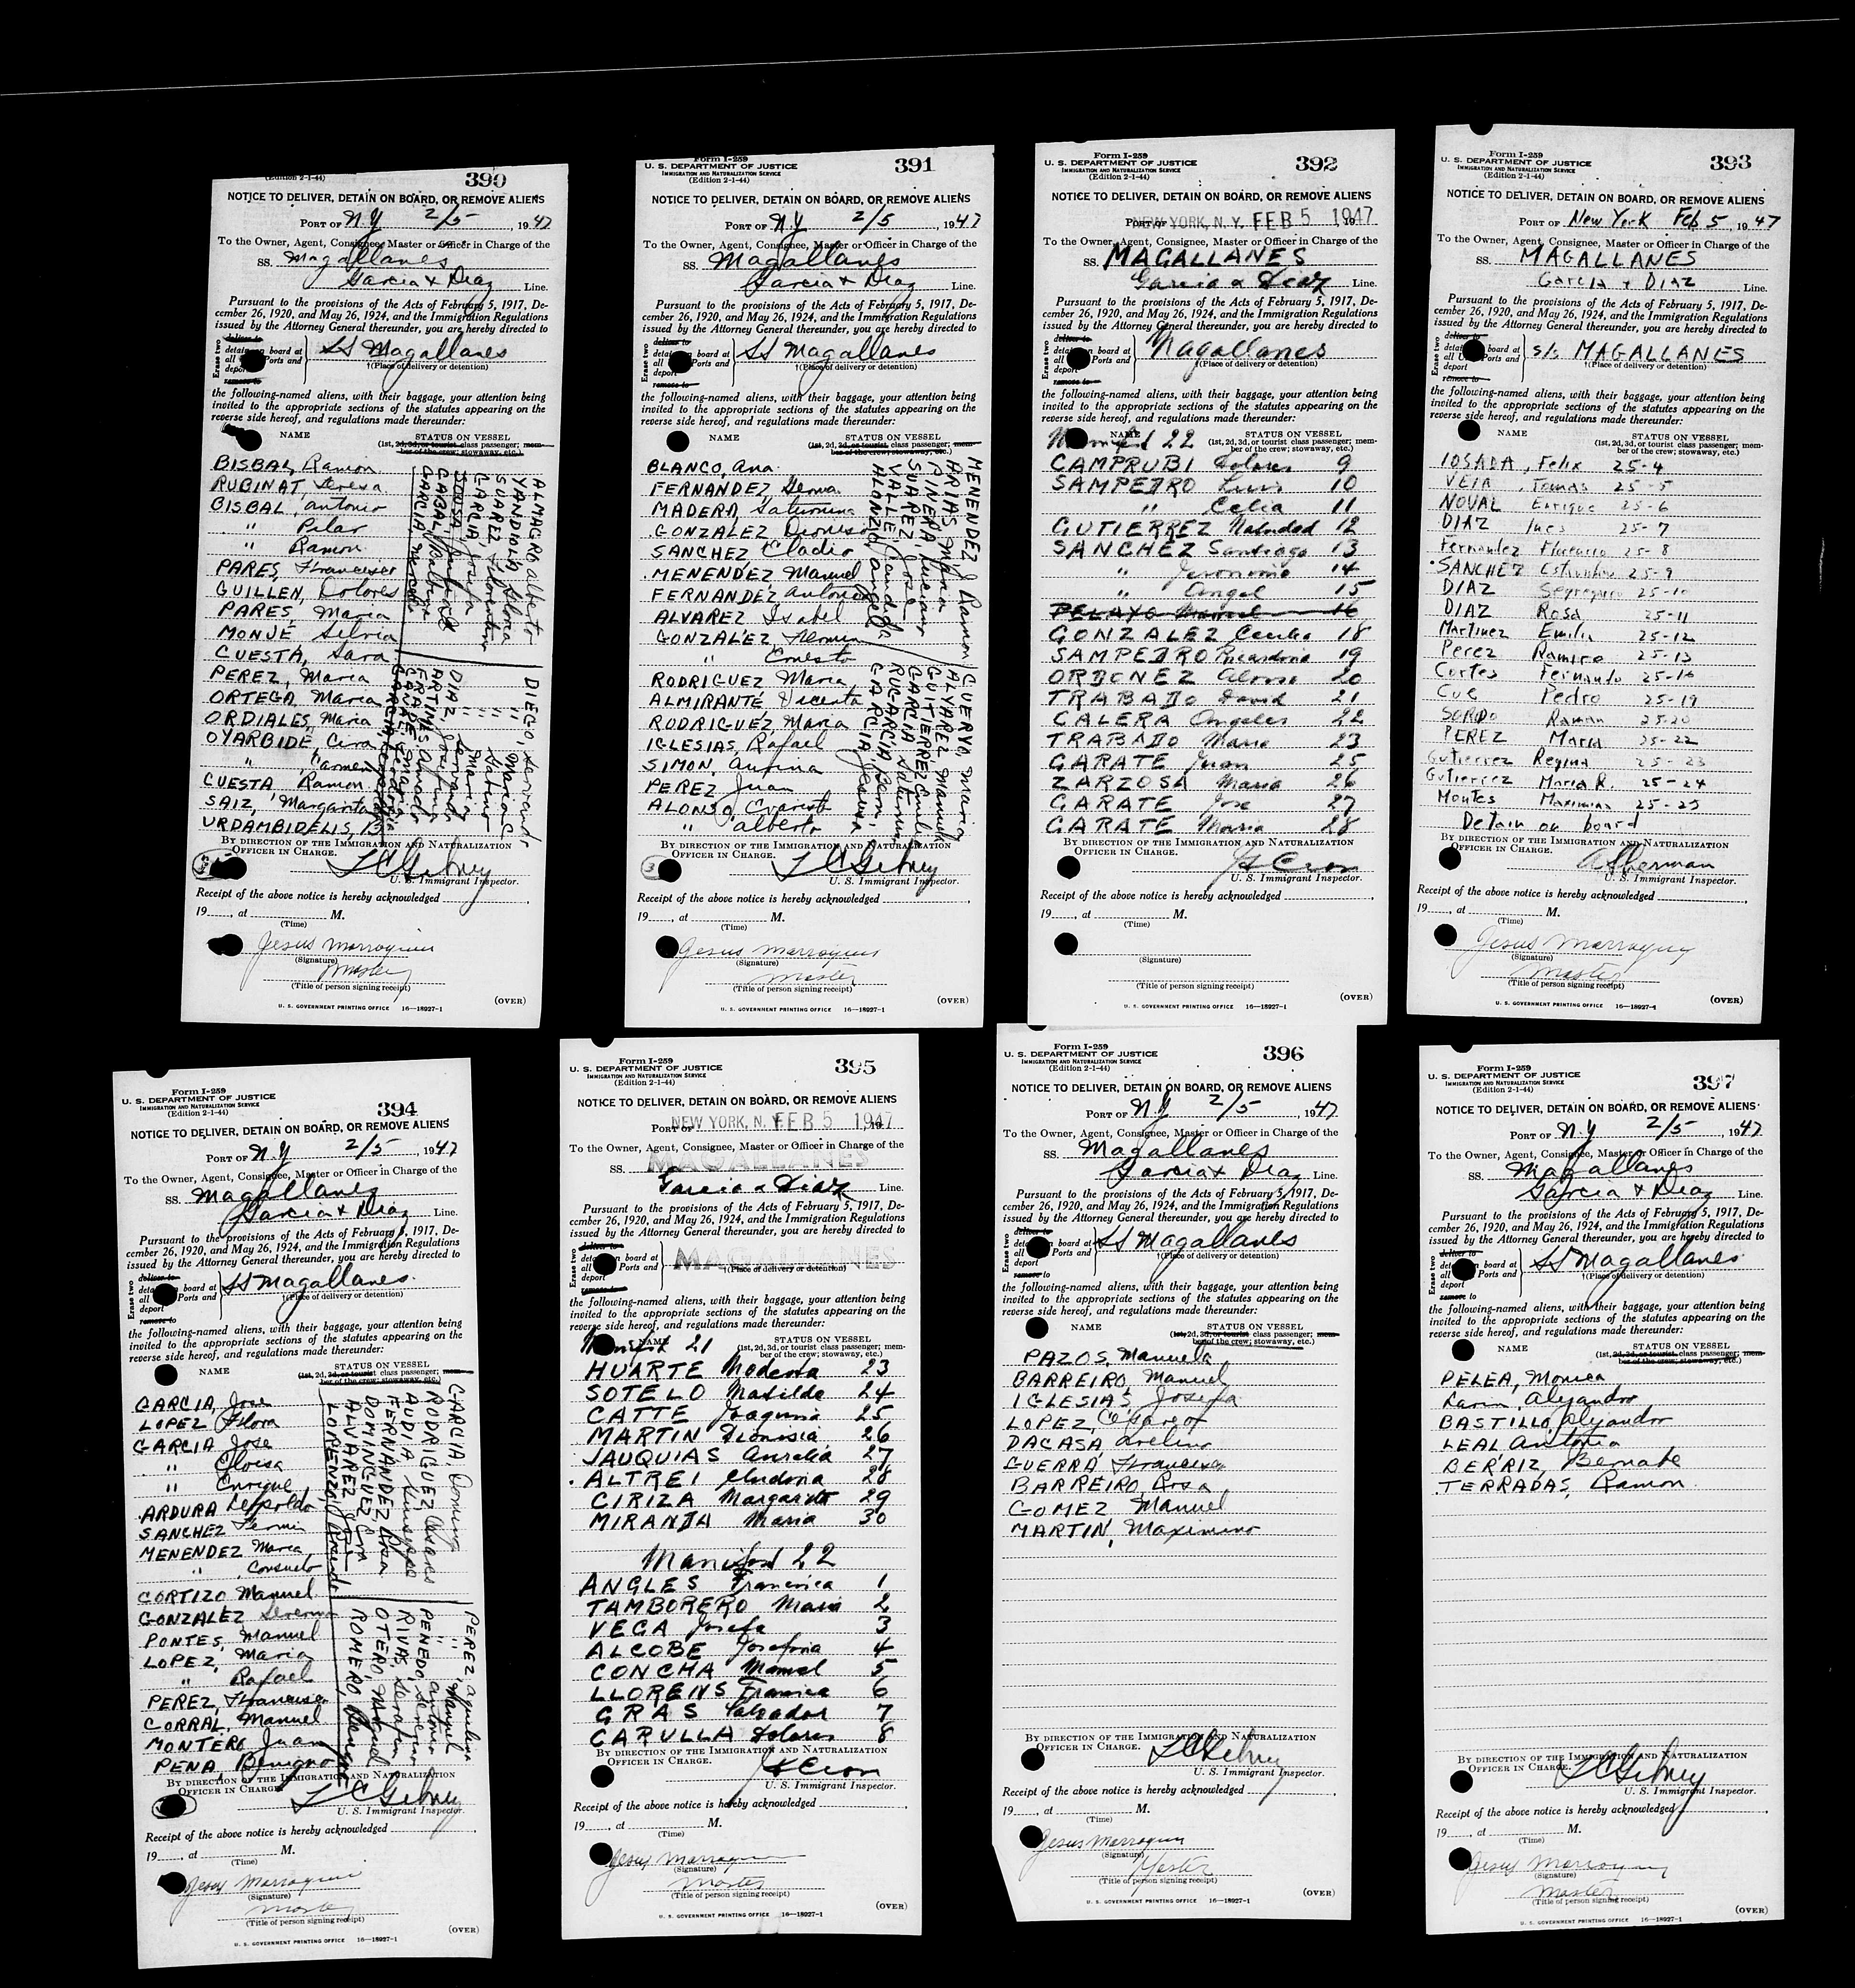 (Edition 2-1-44)
390
NOTICE TO DELIVER, DETAIN ON BOARD, OR REMOVE ALIENS
PORT OF N Y 2/5, 1947
To the Owner, Agent, Consignee, Master or Officer in Charge of the
SS. Magallanes
Garcia & Diaz Line.
Pursuant to the provisions of the Acts of February 5, 1917, De-
cember 26, 1920, and May 26, 1924, and the Immigration Regulations
issued by the Attorney General thereunder, you are hereby directed to
Erase two
deliver to
board at
all Ports and
deport
remove to
SS Magallanes
†(Place of delivery or detention)
the following-named aliens, with their baggage, your attention being
invited to the appropriate sections of the statutes appearing on the
reverse side hereof, and regulations made thereunder:
NAME
STATUS ON VESSEL
(1st, 2d, 3d, or tourist class passenger; mem-
ber of the crew; stowaway, etc.)
BISBAL, Ramon
RUBINAT, Teresa
BISBAL, Antonio
" Pilar
" Ramon
PARES, Francisco
GUILLEN, Dolores
PARES, Maria
MONJE Silvia
CUESTA, Sara
PEREZ, Maria
ORTEGA, Maria
ORDIALES, Maria
OYARBIDE, Cira
" Carmen
CUESTA, Ramon
SAIZ, Margarita
URDAMBIDELIS,
ALMAGRO Alberto
YANDIOLA, Gloria
SUAREZ, Florentino
GARCIA, Josefa
GARCIA, Mercedes
DIEGO, Servando
DIAZ,
BY DIRECTION OF THE IMMIGRATION AND NATURALIZATION
OFFICER IN CHARGE.
U. S. Immigrant Inspector.
Receipt of the above notice is hereby acknowledged
19, at M.
(Time)
Jesus Marroquin
(Signature)
Master
(Title of person signing receipt)
(OVER)
U. S. GOVERNMENT PRINTING OFFICE 16—18927-1
Form I-259
U. S. DEPARTMENT OF JUSTICE
IMMIGRATION AND NATURALIZATION SERVICE
(Edition 2-1-44)
391
NOTICE TO DELIVER, DETAIN ON BOARD, OR REMOVE ALIENS
PORT OF N Y 2/5, 1947
To the Owner, Agent, Consignee, Master or Officer in Charge of the
SS. Magallanes
Garcia & Diaz Line.
Pursuant to the provisions of the Acts of February 5, 1917, De-
cember 26, 1920, and May 26, 1924, and the Immigration Regulations
issued by the Attorney General thereunder, you are hereby directed to
Erase two
deliver to
board at
all Ports and
deport
remove to
SS Magallanes
†(Place of delivery or detention)
the following-named aliens, with their baggage, your attention being
invited to the appropriate sections of the statutes appearing on the
reverse side hereof, and regulations made thereunder:
NAME
STATUS ON VESSEL
(1st, 2d, 3d, or tourist class passenger; mem-
ber of the crew; stowaway, etc.)
BLANCO, Ana
FERNANDEZ, Gema
MADERA, Saturnina
GONZALEZ Dionisio
SANCHEZ, Eladio
MENENDEZ Manuel
FERNANDEZ Antonio
ALVAREZ Isabel
GONZALEZ, Fermin
" Ernesto
RODRIGUEZ Maria
ALMIRANTE Vicenta
RODRIGUEZ, Maria
IGLESIAS, Rafael
SIMON, Aurina
PEREZ Juan
ALONSO, Evaristo
" Alberto
MENENDEZ, Ramon
ARIAS, Maria
PINERA, Luciano
SUAREZ, Jose
VALLE, Candida
ALONZO, Angela
CUERVO, Maria
ALVAREZ, Manuel
GUITIERREZ, Emilio
GARCIA, Saturnino
RUGARCIA,
GARCIA, Jesusa
BY DIRECTION OF THE IMMIGRATION AND NATURALIZATION
OFFICER IN CHARGE.
U. S. Immigrant Inspector.
Receipt of the above notice is hereby acknowledged
19, at M.
(Time)
Jesus Marroquin
(Signature)
Master
(Title of person signing receipt)
(OVER)
U. S. GOVERNMENT PRINTING OFFICE 16—18927-1
Form I-259
U. S. DEPARTMENT OF JUSTICE
IMMIGRATION AND NATURALIZATION SERVICE
(Edition 2-1-44)
392
NOTICE TO DELIVER, DETAIN ON BOARD, OR REMOVE ALIENS
PORT OF NEW YORK, N.Y. FEB 5 1947
To the Owner, Agent, Consignee, Master or Officer in Charge of the
SS. MAGALLANES
Garcia & Diaz Line.
Pursuant to the provisions of the Acts of February 5, 1917, De-
cember 26, 1920, and May 26, 1924, and the Immigration Regulations
issued by the Attorney General thereunder, you are hereby directed to
Erase two
deliver to
board at
all Ports and
deport
remove to
Magallanes
†(Place of delivery or detention)
the following-named aliens, with their baggage, your attention being
invited to the appropriate sections of the statutes appearing on the
reverse side hereof, and regulations made thereunder:
Manifest 22
NAME
STATUS ON VESSEL
(1st, 2d, 3d, or tourist class passenger; mem-
ber of the crew; stowaway, etc.)
CAMPRUBI Dolores 9
SAMPEDRO Luis 10
" Celia 11
GUTIERREZ Natividad 12
SANCHEZ Santiago 13
" Jeronimo 14
" Angel 15
PELAYO Manuel 16
GONZALEZ Cecilia 18
SAMPEDRO Ricardina 19
ORDONEZ Alonso 20
TRABAJO David 21
CALERA Angeles 22
TRABAJO Maria 23
GARATE Juan 25
ZARZOSA Maria 26
GARATE Jose 27
GARATE Maria 28
BY DIRECTION OF THE IMMIGRATION AND NATURALIZATION
OFFICER IN CHARGE.
U. S. Immigrant Inspector.
Receipt of the above notice is hereby acknowledged
19, at M.
(Time)
(Signature)
(Title of person signing receipt)
(OVER)
U. S. GOVERNMENT PRINTING OFFICE 16—18927-1
Form I-259
U. S. DEPARTMENT OF JUSTICE
IMMIGRATION AND NATURALIZATION SERVICE
(Edition 2-1-44)
393
NOTICE TO DELIVER, DETAIN ON BOARD, OR REMOVE ALIENS
PORT OF New York Feb 5, 1947
To the Owner, Agent, Consignee, Master or Officer in Charge of the
SS. MAGALLANES
Garcia & DIAZ Line.
Pursuant to the provisions of the Acts of February 5, 1917, De-
cember 26, 1920, and May 26, 1924, and the Immigration Regulations
issued by the Attorney General thereunder, you are hereby directed to
Erase two
deliver to
board at
all Ports and
deport
remove to
S/S MAGALLANES
†(Place of delivery or detention)
the following-named aliens, with their baggage, your attention being
invited to the appropriate sections of the statutes appearing on the
reverse side hereof, and regulations made thereunder:
NAME
STATUS ON VESSEL
(1st, 2d, 3d, or tourist class passenger; mem-
ber of the crew; stowaway, etc.)
LOSADA, Felix 25-4
VEIA, Tomas 25-5
NOVAL Enrique 25-6
DIAZ Ines 25-7
Fernandez Florencio 25-8
SANCHEZ 25-9
DIAZ 25-10
DIAZ Rosa 25-11
Martinez Emilia 25-12
Perez Ramiro 25-13
Cortes Fernando 25-16
Cue Pedro 25-19
SORDO Ramon 25-20
PEREZ Maria 25-22
Gutierrez Regina 25-23
Gutierrez Maria R. 25-24
Montes Maximina 25-25
Detain on board
BY DIRECTION OF THE IMMIGRATION AND NATURALIZATION
OFFICER IN CHARGE.
A Sherman
U. S. Immigrant Inspector.
Receipt of the above notice is hereby acknowledged
19, at M.
(Time)
Jesus Marroquin
(Signature)
Master
(Title of person signing receipt)
(OVER)
U. S. GOVERNMENT PRINTING OFFICE 16—18927-1
Form I-259
U. S. DEPARTMENT OF JUSTICE
IMMIGRATION AND NATURALIZATION SERVICE
(Edition 2-1-44)
394
NOTICE TO DELIVER, DETAIN ON BOARD, OR REMOVE ALIENS
PORT OF N.Y 2/5, 1947
To the Owner, Agent, Consignee, Master or Officer in Charge of the
SS. Magallanes
Garcia & Diaz Line.
Pursuant to the provisions of the Acts of February 5, 1917, De-
cember 26, 1920, and May 26, 1924, and the Immigration Regulations
issued by the Attorney General thereunder, you are hereby directed to
Erase two
deliver to
board at
all Ports and
deport
remove to
SS Magallanes
†(Place of delivery or detention)
the following-named aliens, with their baggage, your attention being
invited to the appropriate sections of the statutes appearing on the
reverse side hereof, and regulations made thereunder:
NAME
STATUS ON VESSEL
(1st, 2d, 3d, or tourist class passenger; mem-
ber of the crew; stowaway, etc.)
GARCIA, Jose
LOPEZ Flora
GARCIA Jose
" Eloisa
" Enrique
ARDURA Leopoldo
SANCHEZ Fermin
MENENDEZ Maria
" Consuelo
CORTIZO Manuel
GONZALEZ Severino
PONTES, Manuel
LOPEZ, Maria
" Rafael
PEREZ, Francisca
CORRAL, Manuel
MONTERO Juan
PENA, Benigno
GARCIA, Domingo
RODRIGUEZ
AUDIA Giuseppe
FERNANDEZ
DOMINGUEZ
ALVAREZ, Jose
LORENZO,
PEREZ, Agustina
" Manuel
PENEDO,
RIVAS, Serafin
OTERO, Manuel
ROMERO, Enrique
BY DIRECTION OF THE IMMIGRATION AND NATURALIZATION
OFFICER IN CHARGE.
U. S. Immigrant Inspector.
Receipt of the above notice is hereby acknowledged
19, at M.
(Time)
Jesus Marroquin
(Signature)
Master
(Title of person signing receipt)
(OVER)
U. S. GOVERNMENT PRINTING OFFICE 16—18927-1
Form I-259
U. S. DEPARTMENT OF JUSTICE
IMMIGRATION AND NATURALIZATION SERVICE
(Edition 2-1-44)
395
NOTICE TO DELIVER, DETAIN ON BOARD, OR REMOVE ALIENS
PORT OF NEW YORK, N. Y. FEB 5 1947
To the Owner, Agent, Consignee, Master or Officer in Charge of the
SS. MAGALLANES
Garcia & Diaz Line.
Pursuant to the provisions of the Acts of February 5, 1917, De-
cember 26, 1920, and May 26, 1924, and the Immigration Regulations
issued by the Attorney General thereunder, you are hereby directed to
Erase two
deliver to
board at
all Ports and
deport
MAGALLANES
†(Place of delivery or detention)
the following-named aliens, with their baggage, your attention being
invited to the appropriate sections of the statutes appearing on the
reverse side hereof, and regulations made thereunder:
Manifest 21
NAME
STATUS ON VESSEL
(1st, 2d, 3d, or tourist class passenger; mem-
ber of the crew; stowaway, etc.)
HUARTE Modesta 23
SOTELO Matilda 24
CATTE Joaquina 25
MARTIN Dionisia 26
JAUQUIAS Aurelia 27
ALTREI 28
CIRIZA Margarita 29
MIRANDA Maria 30
Manifest 22
ANGLES Francisca 1
TAMBORERO Maria 2
VEGA Josefa 3
ALCOBE Josefina 4
CONCHA Manuel 5
LLORENS Francisca 6
GRAS Salvador 7
CARULLA Dolores 8
BY DIRECTION OF THE IMMIGRATION AND NATURALIZATION
OFFICER IN CHARGE.
U. S. Immigrant Inspector.
Receipt of the above notice is hereby acknowledged
19, at M.
(Time)
Jesus Marroquin
(Signature)
Master
(Title of person signing receipt)
(OVER)
U. S. GOVERNMENT PRINTING OFFICE 16—18927-1
Form I-259
U. S. DEPARTMENT OF JUSTICE
IMMIGRATION AND NATURALIZATION SERVICE
(Edition 2-1-44)
396
NOTICE TO DELIVER, DETAIN ON BOARD, OR REMOVE ALIENS
PORT OF N Y 2/5, 1947
To the Owner, Agent, Consignee, Master or Officer in Charge of the
SS. Magallanes
Garcia & Diaz Line.
Pursuant to the provisions of the Acts of February 5, 1917, De-
cember 26, 1920, and May 26, 1924, and the Immigration Regulations
issued by the Attorney General thereunder, you are hereby directed to
Erase two
deliver to
board at
all Ports and
deport
remove to
SS Magallanes
†(Place of delivery or detention)
the following-named aliens, with their baggage, your attention being
invited to the appropriate sections of the statutes appearing on the
reverse side hereof, and regulations made thereunder:
NAME
STATUS ON VESSEL
(1st, 2d, 3d, or tourist class passenger; mem-
ber of the crew; stowaway, etc.)
PAZOS, Manuela
BARREIRO, Manuel
IGLESIAS, Josefa
LOPEZ,
DACASA, Avelino
GUERRA Francisca
BARREIRO, Rosa
GOMEZ Manuel
MARTIN, Maximino
BY DIRECTION OF THE IMMIGRATION AND NATURALIZATION
OFFICER IN CHARGE.
U. S. Immigrant Inspector.
Receipt of the above notice is hereby acknowledged
19, at M.
(Time)
Jesus Marroquin
(Signature)
Master
(Title of person signing receipt)
(OVER)
U. S. GOVERNMENT PRINTING OFFICE 16—18927-1
Form I-259
U. S. DEPARTMENT OF JUSTICE
IMMIGRATION AND NATURALIZATION SERVICE
(Edition 2-1-44)
397
NOTICE TO DELIVER, DETAIN ON BOARD, OR REMOVE ALIENS
PORT OF N.Y 2/5, 1947
To the Owner, Agent, Consignee, Master or Officer in Charge of the
SS. Magallanes
Garcia & Diaz Line.
Pursuant to the provisions of the Acts of February 5, 1917, De-
cember 26, 1920, and May 26, 1924, and the Immigration Regulations
issued by the Attorney General thereunder, you are hereby directed to
Erase two
deliver to
board at
all Ports and
deport
remove to
SS Magallanes
†(Place of delivery or detention)
the following-named aliens, with their baggage, your attention being
invited to the appropriate sections of the statutes appearing on the
reverse side hereof, and regulations made thereunder:
NAME
STATUS ON VESSEL
(1st, 2d, 3d, or tourist class passenger; mem-
ber of the crew; stowaway, etc.)
PELEA, Monica
Alejandro
BASTILLO, Alejandor
LEAL Antonia
BERRIZ, Bernabe
TERRADAS, Ramon
BY DIRECTION OF THE IMMIGRATION AND NATURALIZATION
OFFICER IN CHARGE.
U. S. Immigrant Inspector.
Receipt of the above notice is hereby acknowledged
19, at M.
(Time)
Jesus Marroquin
(Signature)
Master
(Title of person signing receipt)
(OVER)
U. S. GOVERNMENT PRINTING OFFICE 16—18927-1